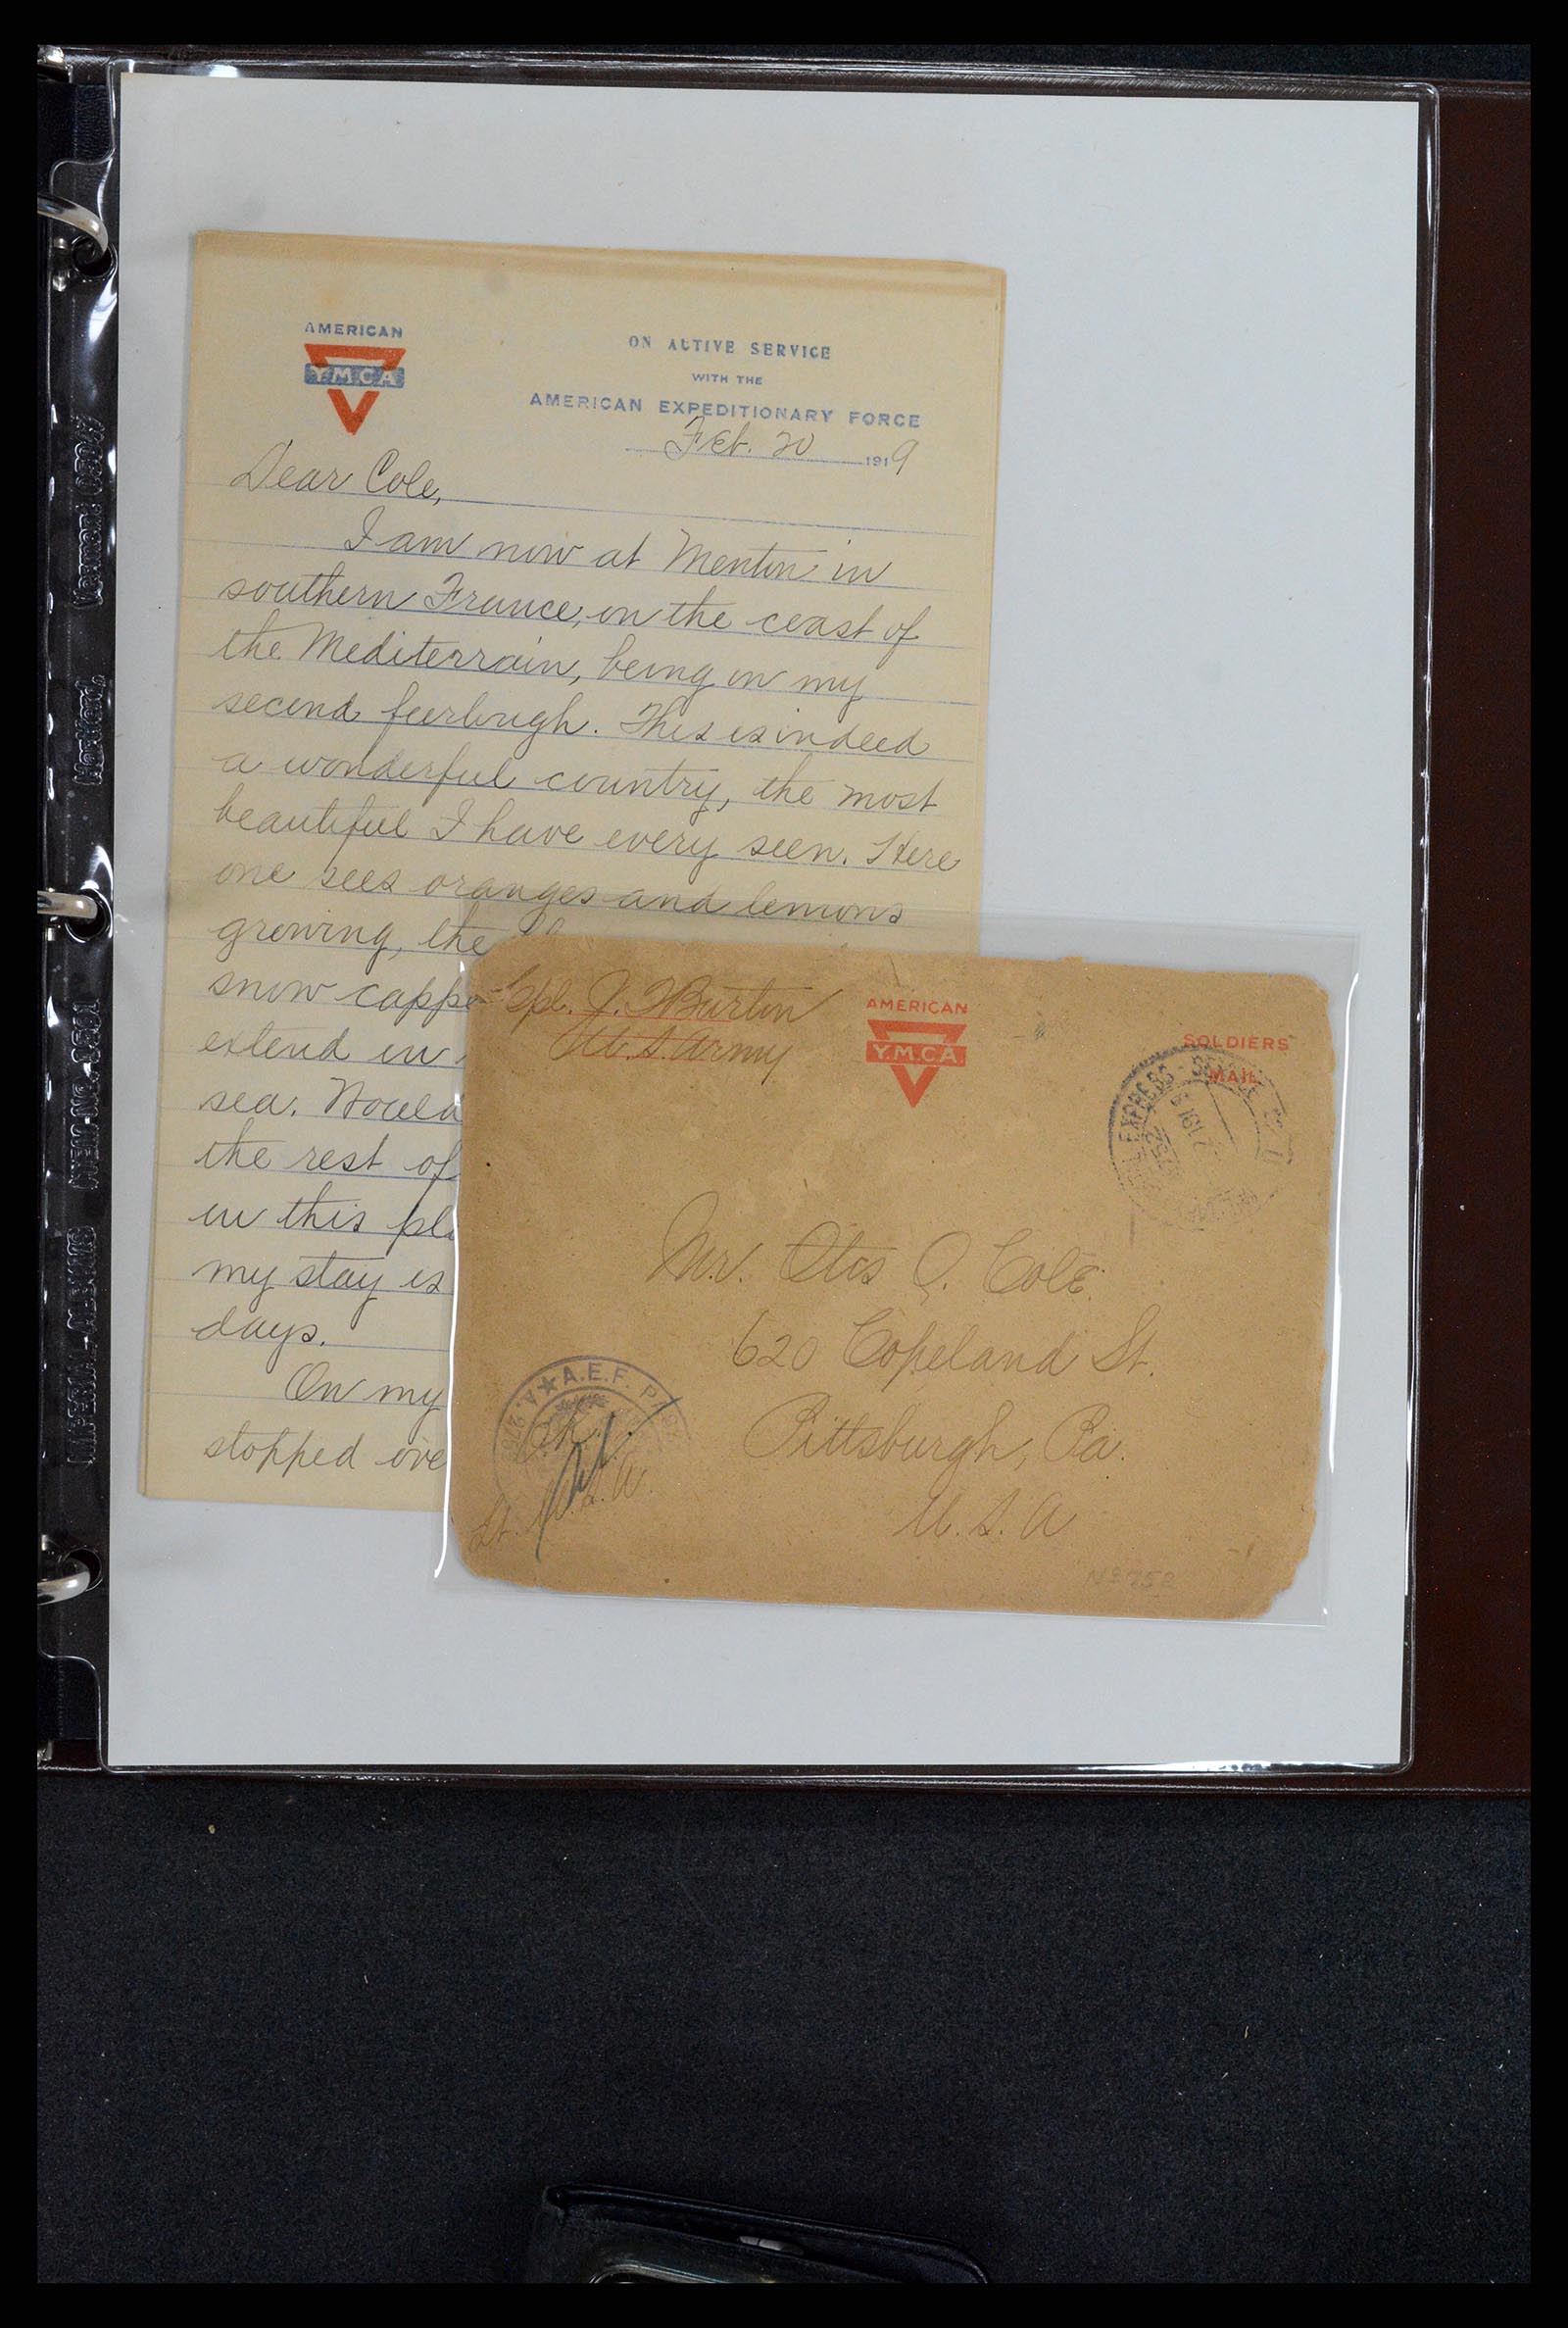 AMERICAN
Y.M.C.A
ON ACTIVE SERVICE
WITH THE
AMERICAN EXPEDITIONARY FORCE
Feb. 20 1919
Dear Cole,
I am now at Menton in
southern France, on the coast of
the Mediterrain, being on my
second furlough. This is indeed
a wonderful country, the most
beautiful I have every seen. Here
one sees oranges and lemons
growing, the
snow cappe
extend in
sea. Would
the rest of
in this pla
my stay is
days.
On my
stopped ove
Cpl. J. Burton
U.S. Army
AMERICAN
Y.M.C.A.
SOLDIERS
MAIL
EXPRESS
Mr. Otis O. Cole
620 Copeland St.
Pittsburgh, Pa.
U. S. A
A.E.F. PASS
O.K.
Lt. U.S.A.
No 752
Hartford,